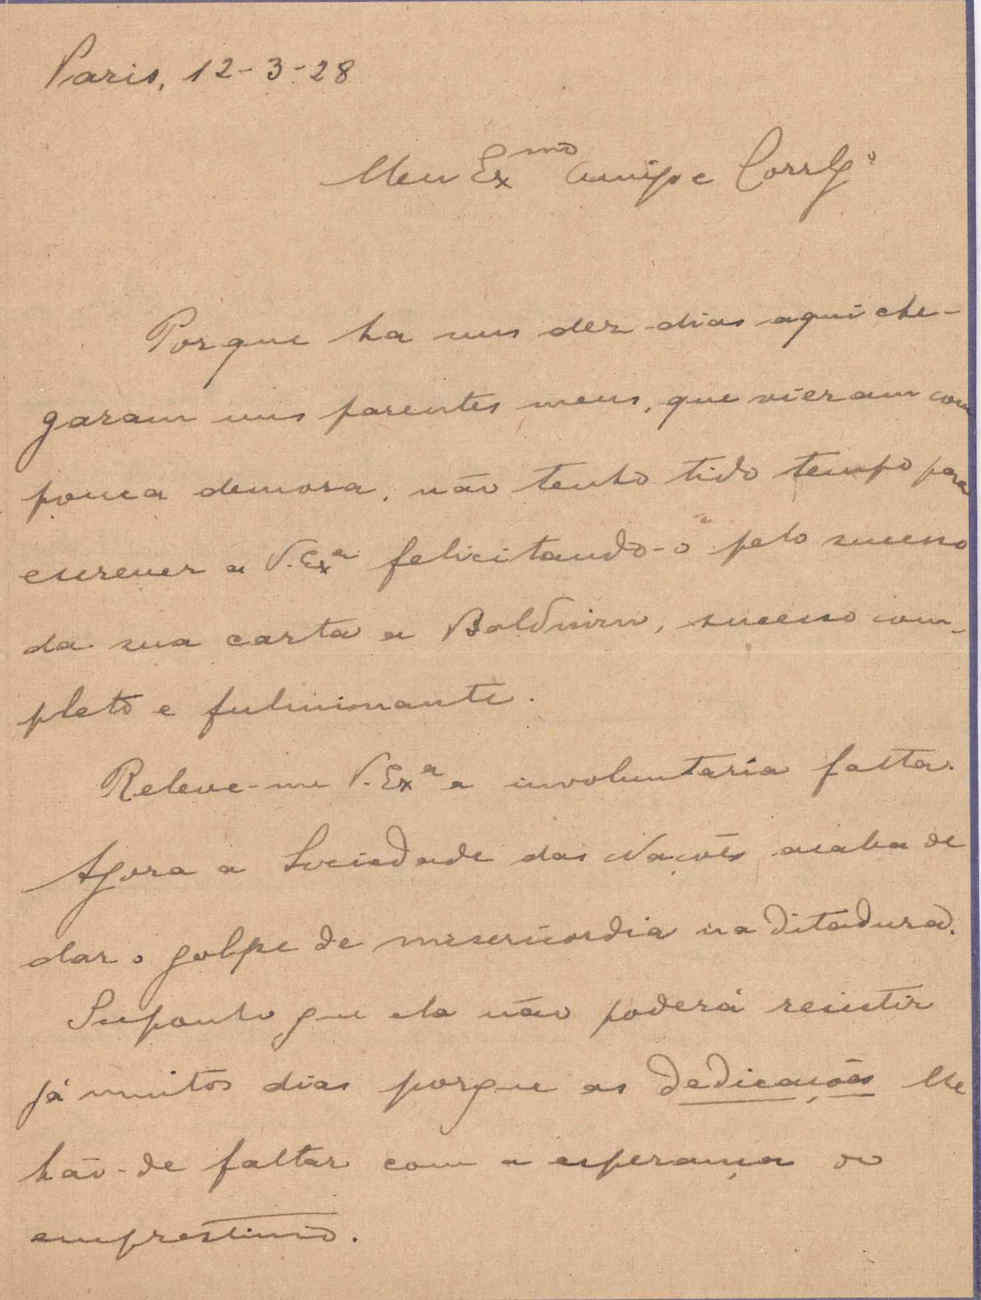 Paris, 12-3-28
Meu Exmo Amigo e Corrlgo
Porque ha uns dez dias aqui che-
garam uns parentes meus, que vieram com
pouca demora, não tenho tido tempo para
escrever a V. Exa felicitando-o pelo sucesso
da sua carta a Balduino, sucesso com-
pleto e fulminante.
Releve-me V. Exa a involuntaria falta.
Agora a Sociedade das Nações acaba de
dar o golpe de misericordia na ditadura.
Suponho que ela não poderá resistir
já muitos dias porque as dedicações lhe
hão-de faltar com a esperança do
emprestimo.